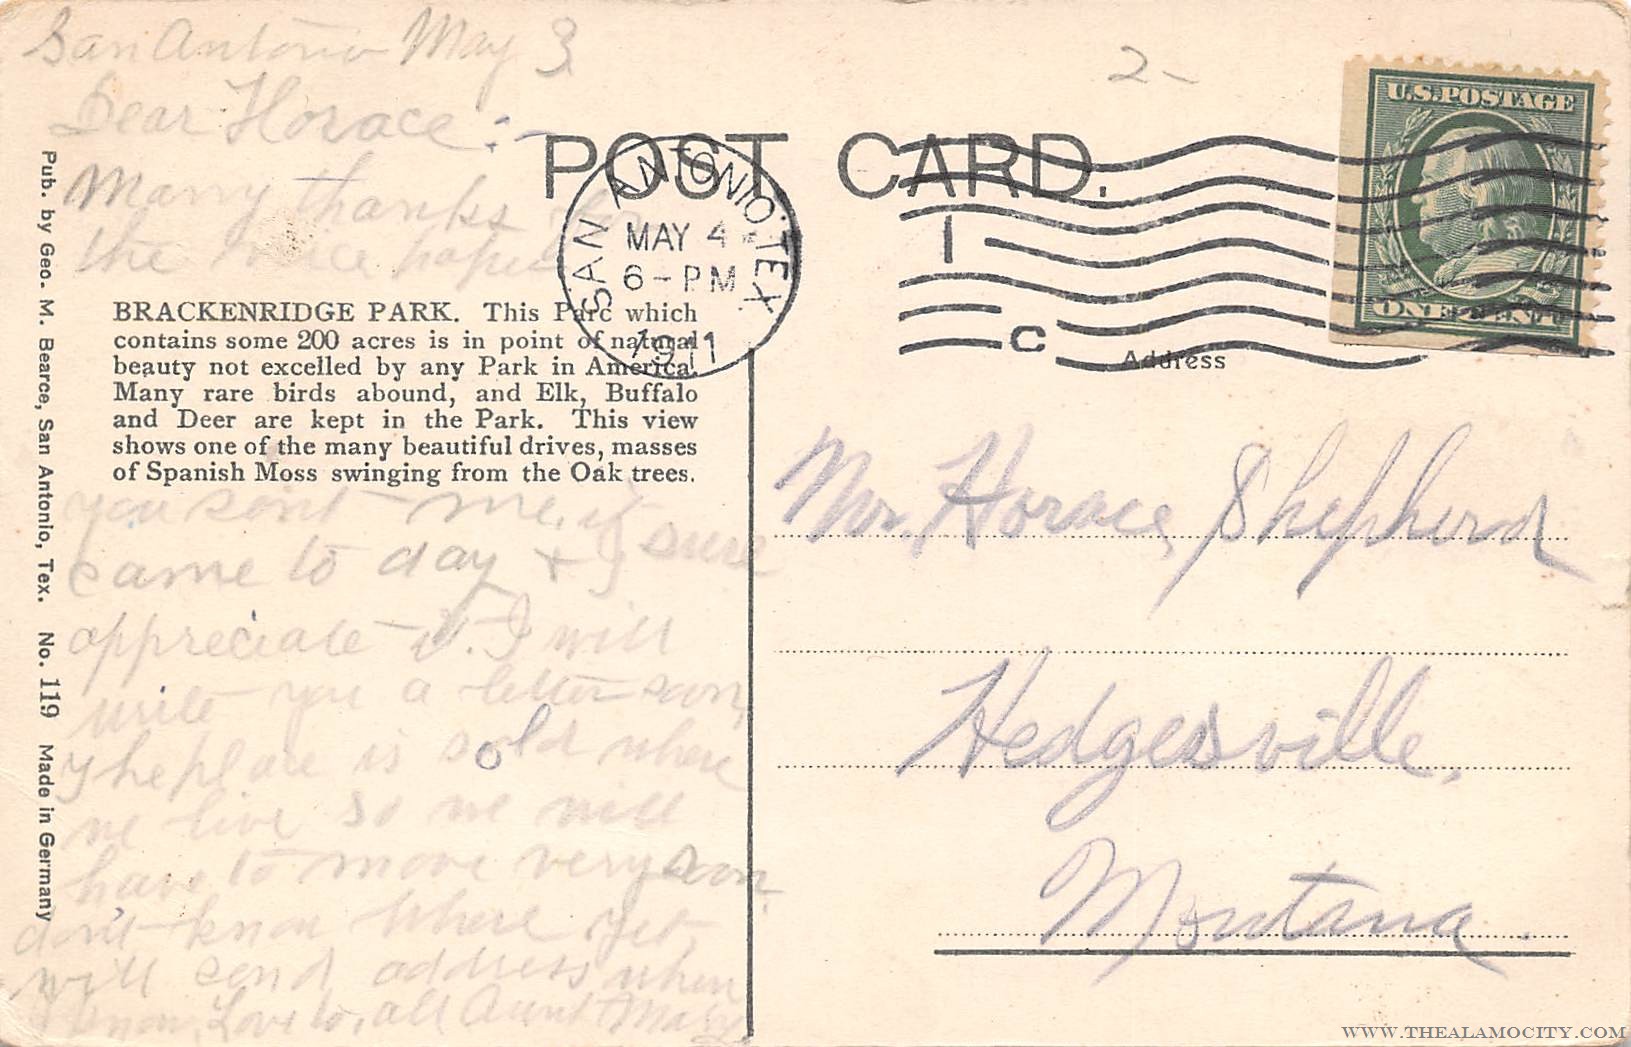 San Antonio May 3
Dear Horace:-
Many thanks for
the nice paper
POST CARD.
SAN ANTONIO, TEX.
MAY 4
6-PM
1911
1
C
2-
U.S. POSTAGE
ONE CENT
BRACKENRIDGE PARK. This Parc which
contains some 200 acres is in point of natural
beauty not excelled by any Park in America.
Many rare birds abound, and Elk, Buffalo
and Deer are kept in the Park. This view
shows one of the many beautiful drives, masses
of Spanish Moss swinging from the Oak trees.
you sent me, it
came to day + I sure
appreciate it. I will
write you a letter soon,
The place is sold where
we live so we will
have to move very soon.
don't know where yet,
will send address when
I know, Love to, all Aunt Mary
Pub. by Geo. M. Bearce, San Antonio, Tex. No. 119 Made in Germany
Address
Mr. Horace Shepherd
Hedgesville,
Montana.
WWW.THEALAMOCITY.COM